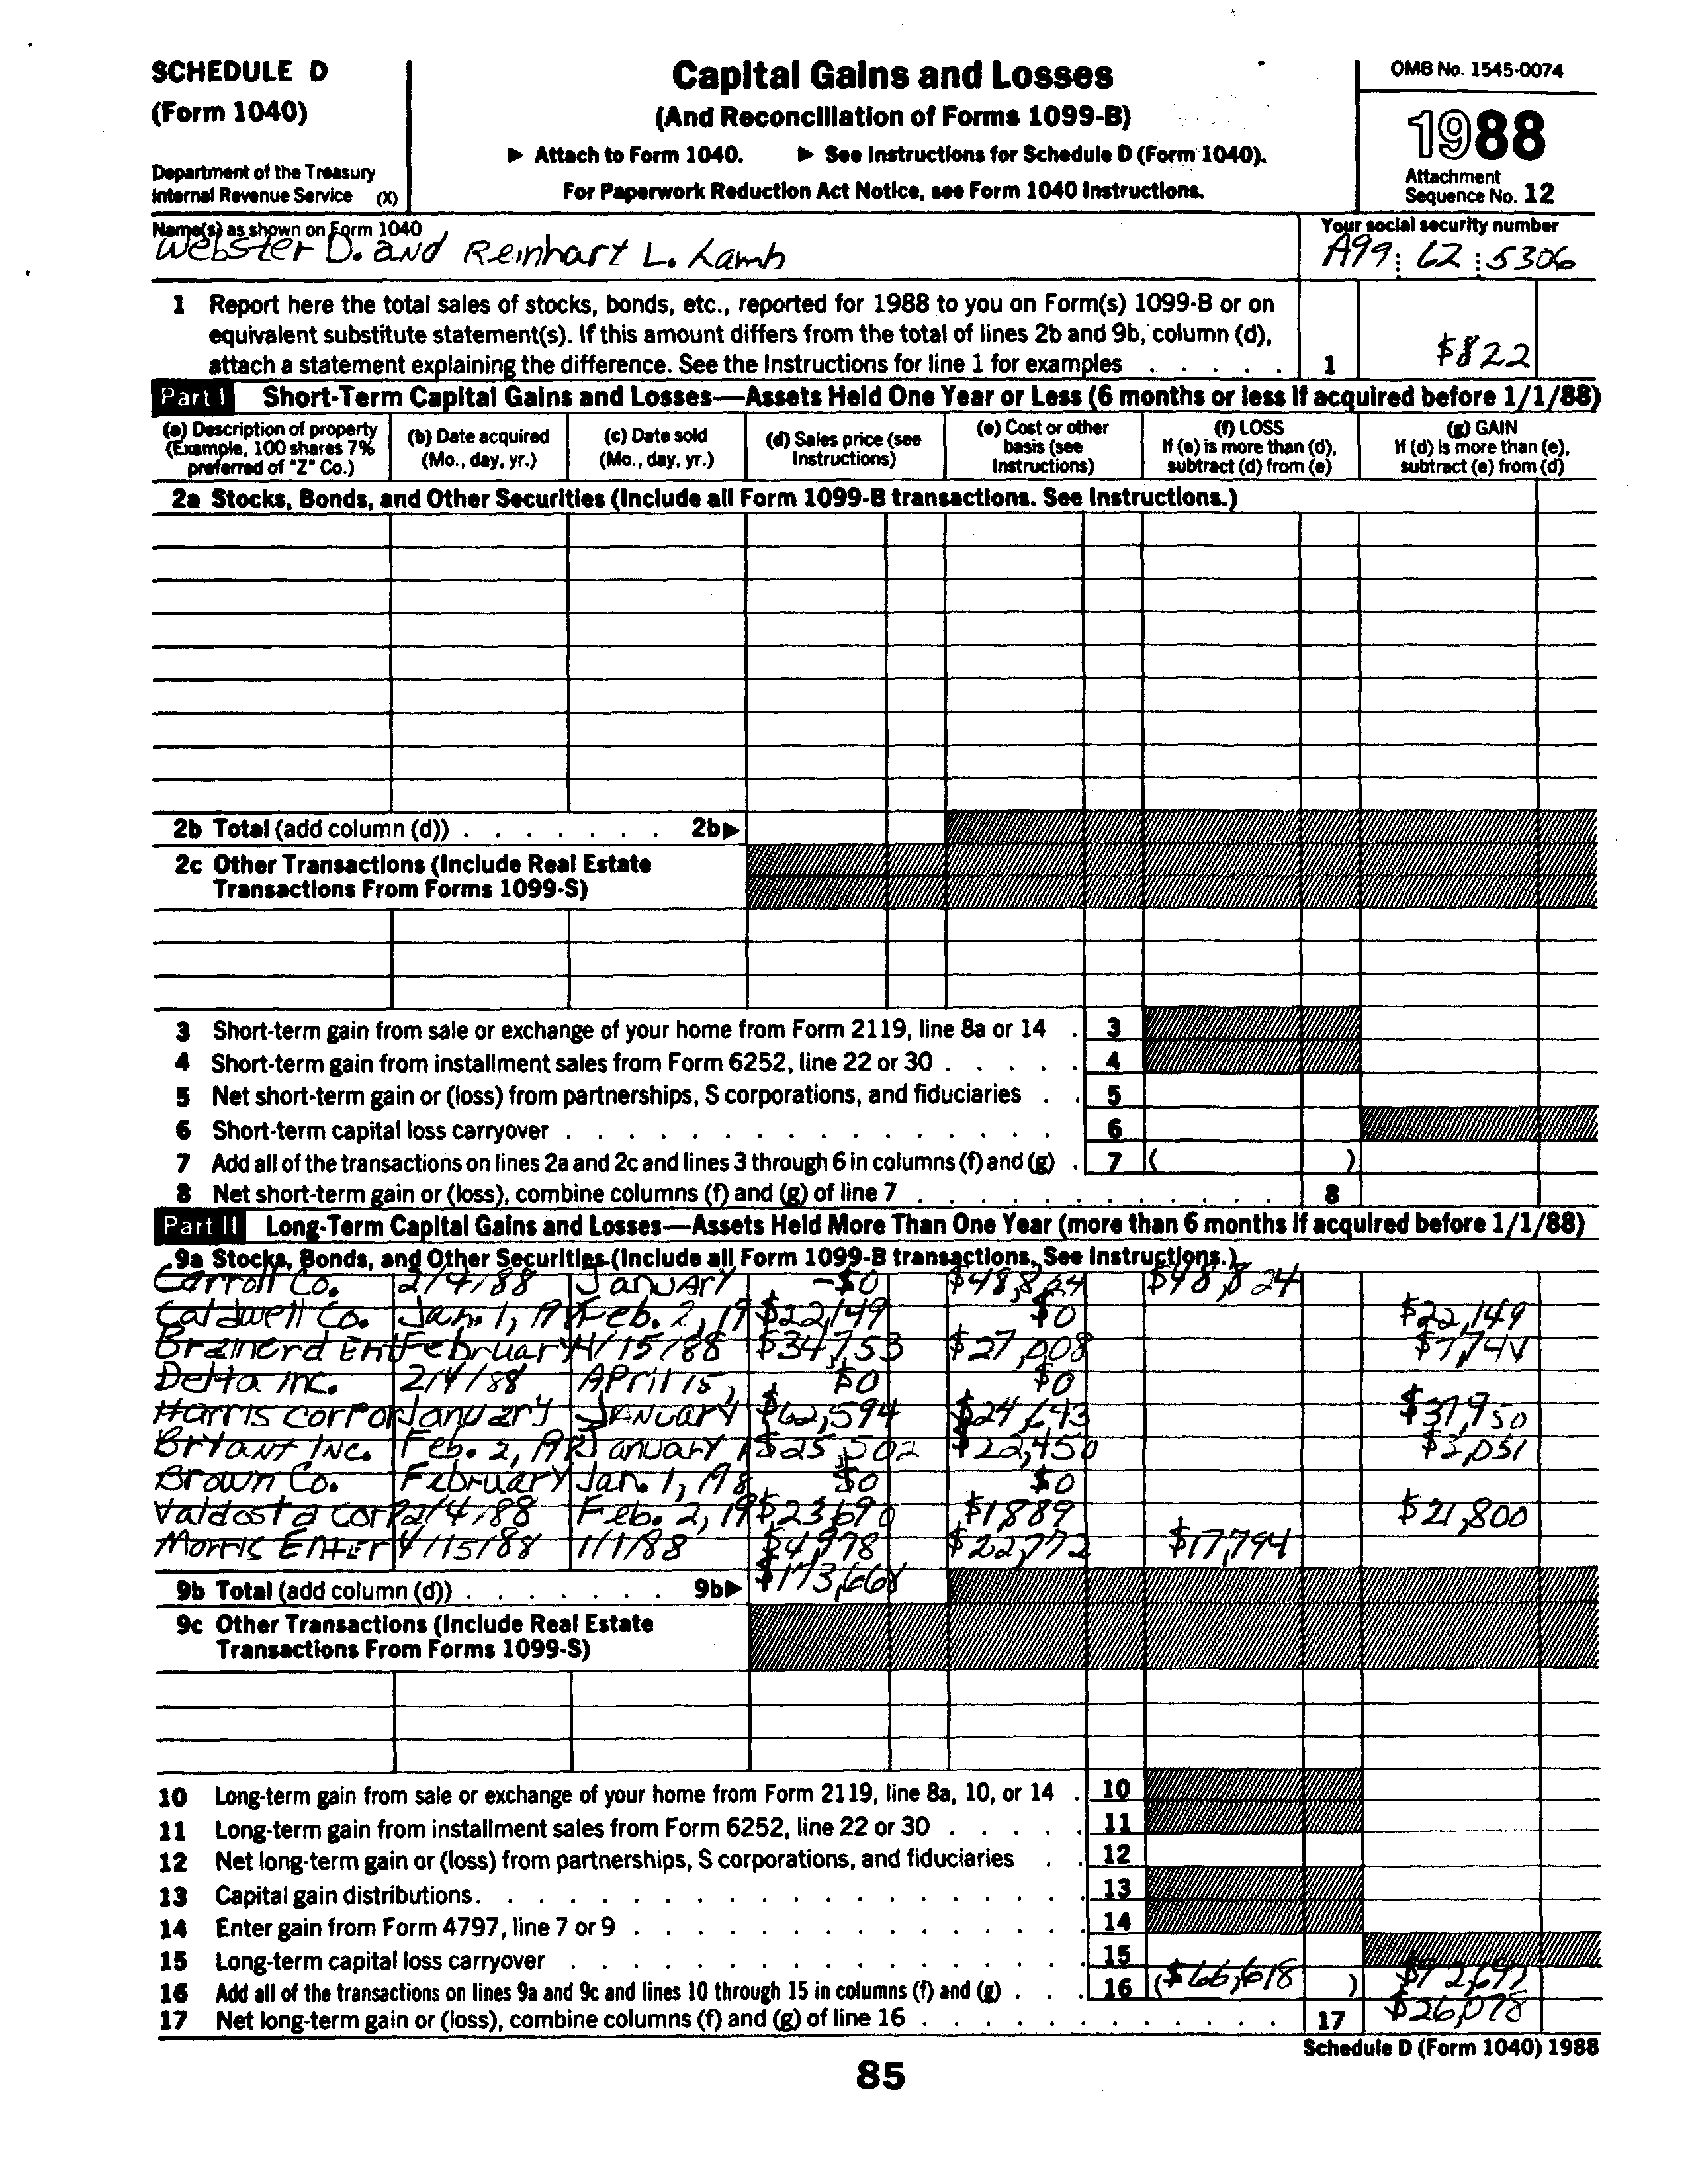 SCHEDULE D
(Form 1040)
Department of the Treasury
Internal Revenue Service (X)
Capital Gains and Losses
(And Reconciliation of Forms 1099-B)
▶ Attach to Form 1040. ▶ See Instructions for Schedule D (Form 1040).
For Paperwork Reduction Act Notice, see Form 1040 Instructions.
OMB No. 1545-0074
1988
Attachment
Sequence No. 12
Name(s) as shown on Form 1040
Webster D. and Reinhart L. Lamb
Your social security number
A99 62 5306
1 Report here the total sales of stocks, bonds, etc., reported for 1988 to you on Form(s) 1099-B or on
equivalent substitute statement(s). If this amount differs from the total of lines 2b and 9b, column (d),
attach a statement explaining the difference. See the Instructions for line 1 for examples . . . . . 1 $822
Part I Short-Term Capital Gains and Losses—Assets Held One Year or Less (6 months or less if acquired before 1/1/88)
(a) Description of property
(Example, 100 shares 7%
preferred of "Z" Co.)
(b) Date acquired
(Mo., day, yr.)
(c) Date sold
(Mo., day, yr.)
(d) Sales price (see
Instructions)
(e) Cost or other
basis (see
Instructions)
(f) LOSS
If (e) is more than (d),
subtract (d) from (e)
(g) GAIN
If (d) is more than (e),
subtract (e) from (d)
2a Stocks, Bonds, and Other Securities (Include all Form 1099-B transactions. See Instructions.)
2b Total (add column (d)) . . . . . . . 2b▶
2c Other Transactions (Include Real Estate
Transactions From Forms 1099-S)
3 Short-term gain from sale or exchange of your home from Form 2119, line 8a or 14 . 3
4 Short-term gain from installment sales from Form 6252, line 22 or 30 . . . . . 4
5 Net short-term gain or (loss) from partnerships, S corporations, and fiduciaries . . 5
6 Short-term capital loss carryover . . . . . . . . . . . . . . . . 6
7 Add all of the transactions on lines 2a and 2c and lines 3 through 6 in columns (f) and (g) . 7 ( )
8 Net short-term gain or (loss), combine columns (f) and (g) of line 7 . . . . . . . . . . . . 8
Part II Long-Term Capital Gains and Losses—Assets Held More Than One Year (more than 6 months if acquired before 1/1/88)
9a Stocks, Bonds, and Other Securities (Include all Form 1099-B transactions. See Instructions.)
Carroll Co. 2/4/88 January -$0 $48,824 $48,824
Caldwell Co. Jan. 1, 19 Feb. 2, 19 $22,149 $0 $22,149
Brainerd Ent February 4/15/88 $34,753 $27,008 $7,744
Delta Inc. 2/4/88 April 15, $0 $0
Harris Corpor January January $62,594 $24,643 $37,950
Bryant Inc. Feb. 2, 19 January 1 $25,502 $22,450 $3,051
Brown Co. February Jan. 1, 198 $0 $0
Valdosta Corp 2/4/88 Feb. 2, 19 $23,690 $1,889 $21,800
Morris Enter 4/15/88 1/1/88 $4,978 $22,772 $17,794
9b Total (add column (d)) . . . . . . . 9b▶ $173,668
9c Other Transactions (Include Real Estate
Transactions From Forms 1099-S)
10 Long-term gain from sale or exchange of your home from Form 2119, line 8a, 10, or 14 . 10
11 Long-term gain from installment sales from Form 6252, line 22 or 30 . . . . . 11
12 Net long-term gain or (loss) from partnerships, S corporations, and fiduciaries . . 12
13 Capital gain distributions . . . . . . . . . . . . . . . . . . . 13
14 Enter gain from Form 4797, line 7 or 9 . . . . . . . . . . . . . . 14
15 Long-term capital loss carryover . . . . . . . . . . . . . . . . 15
16 Add all of the transactions on lines 9a and 9c and lines 10 through 15 in columns (f) and (g) . . . 16 ($66,618 ) $92,697
17 Net long-term gain or (loss), combine columns (f) and (g) of line 16 . . . . . . . . . . . . 17 $26,078
Schedule D (Form 1040) 1988
85